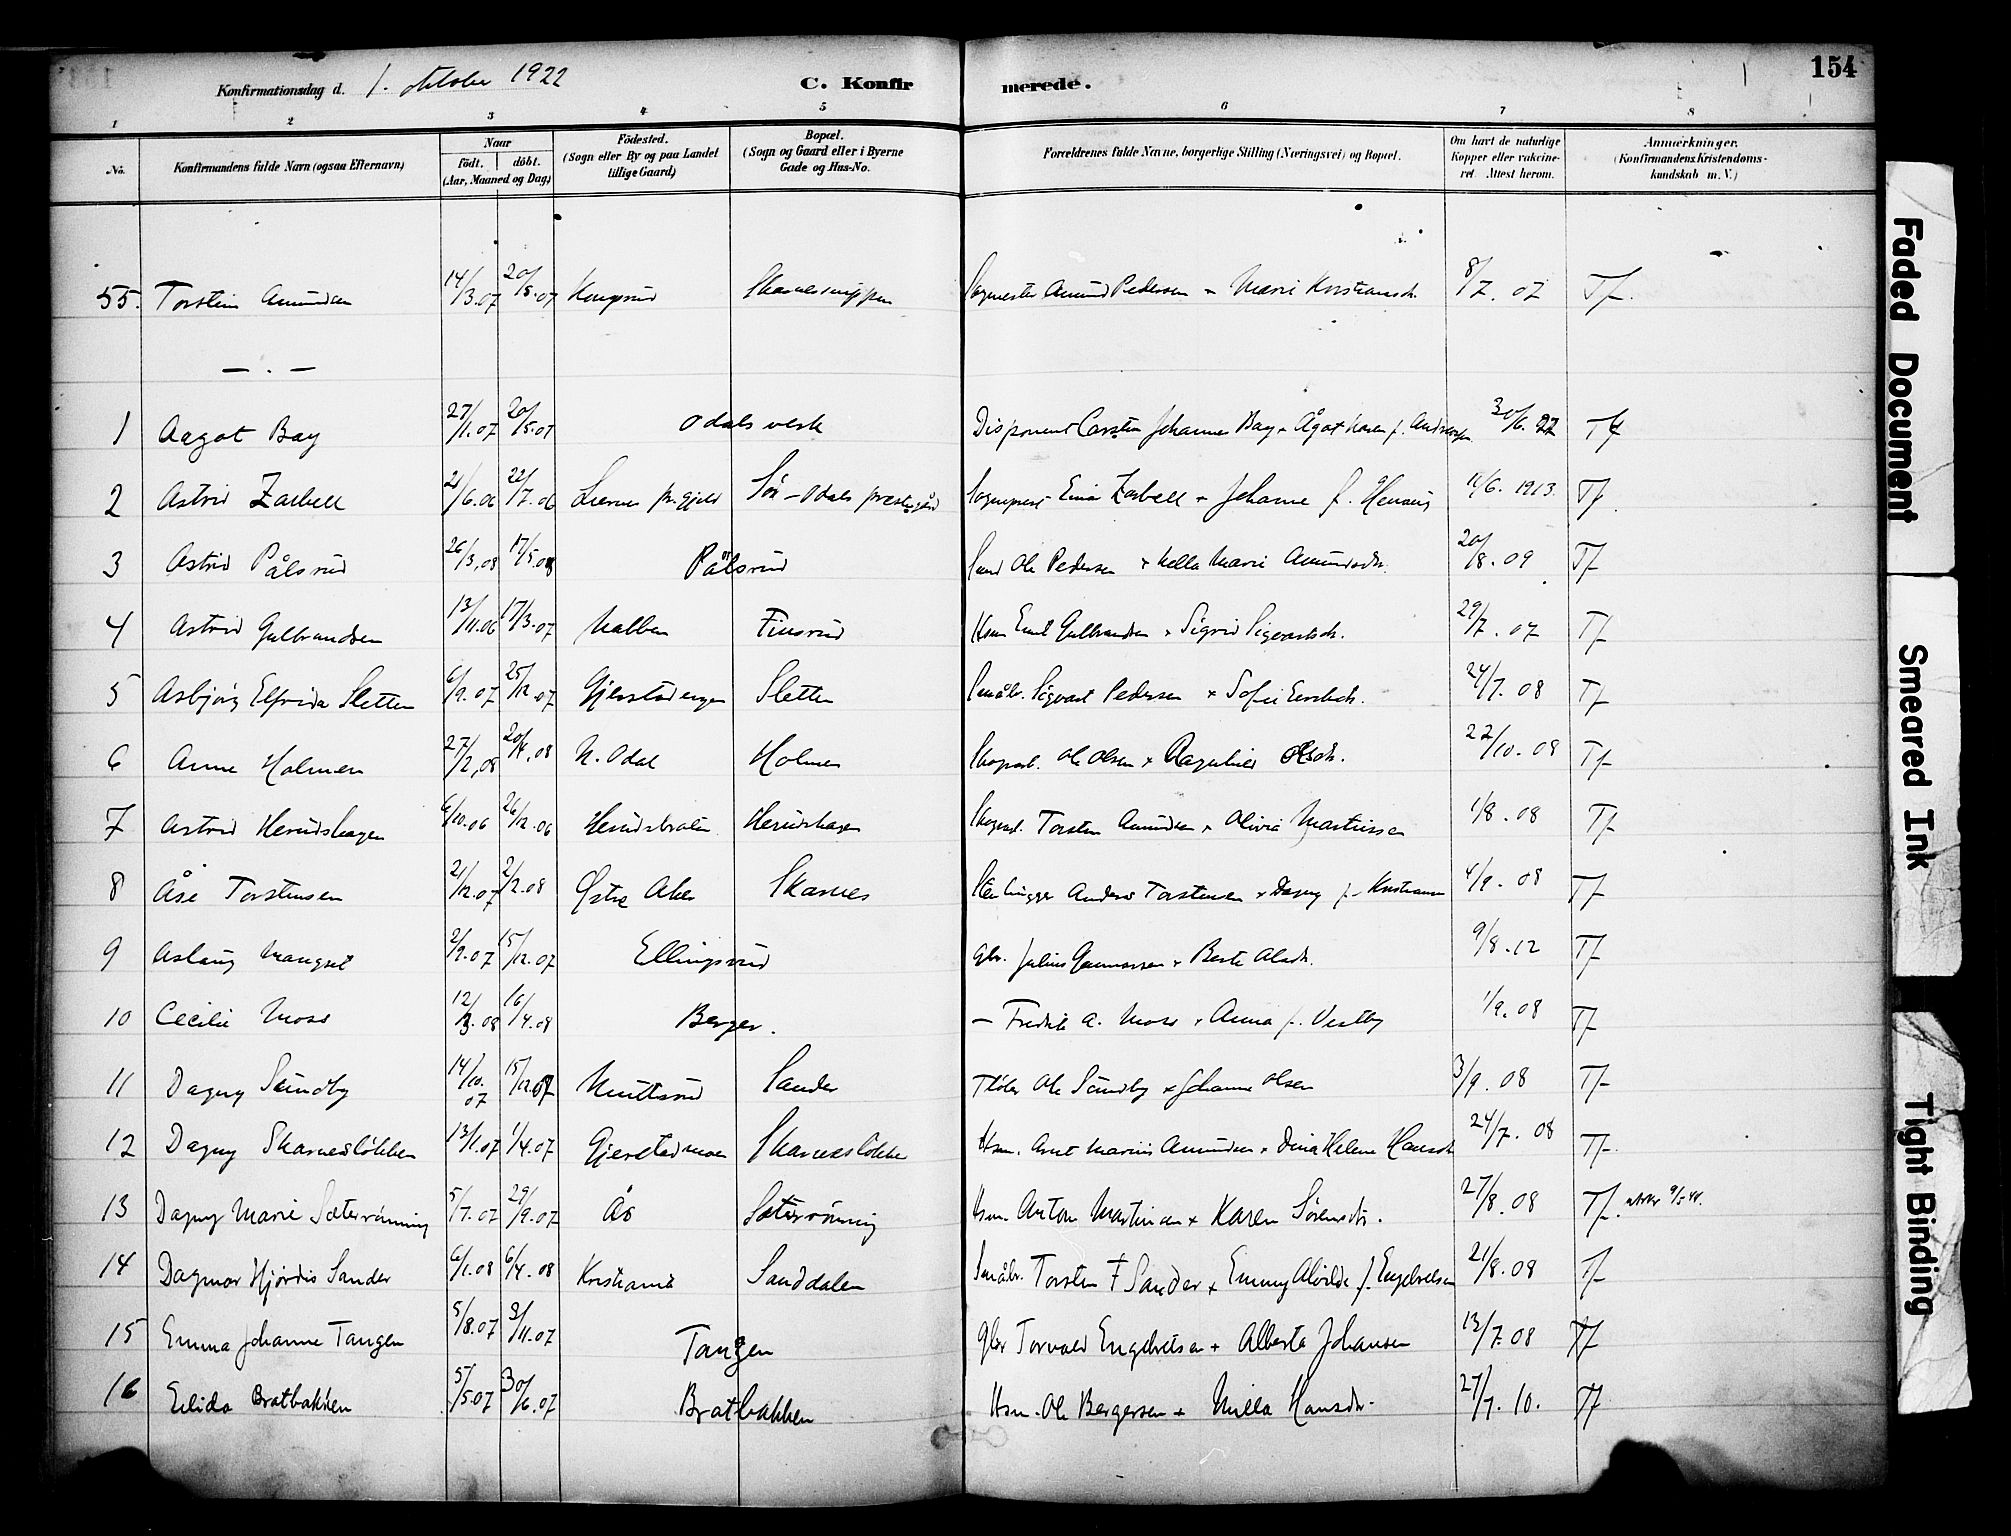 154
Konfirmationsdag d. 1. oktober 1922
C. Konfirmerede.
1 2 3 4 5 6 7 8
No.
Konfirmandens fulde Navn (ogsaa Efternavn)
Naar
födt. döbt.
(Aar, Maaned og Dag)
Födested.
(Sogn eller By og paa Landet
tillige Gaard)
Bopæl.
(Sogn og Gaard eller i Byerne
Gade og Hus-No.
Forældrenes fulde Navne, borgerlige Stilling (Næringsvei) og Bopæl.
Om havt de naturlige
Kopper eller vakcine-
ret Attest herom.
Anmærkninger.
(Konfirmandens Kristendoms-
kundskab m. V.)
55. Torstein Amundsen 14/3.07 20/5.07 Amund Pedersen + Marie 8/7. 07 Tf.
— . —
1 Aagot Bay 27/1.07 20/5.07 Odals verk Disponent Carsten Johannes Bay + Ågot Karen f. 30/6. 22 Tf
2 Astrid Zarbell 21/6.06 22/7.06 Sör-Odals prestegård Sogneprest Einar Zarbell + Johanne f. 1913. Tf.
3 Astrid Pålsrud 26/3.08 17/5.08 Pålsrud Ole Pedersen + Marie Amundsdtr. 20/8.09 Tf
4 Astrid Gulbrandsen 13/11.06 17/3.07 Finsrud Hsm Emil Gulbrandsen + Sigrid 29/7.07 Tf
5 Asbjörg Elfrida Sletten 6/9.07 25/12.07 Gjerstadengen Sletten Småbr. Sigvart Pedersen + Sofie 24/7.08 Tf
6 Anne Holmen 27/2.08 20/4.08 N. Odal Holmen Ole Olsen + 22/10.08 Tf
7 Astrid Herudshagen 6/10.06 26/12.06 Herudsbraten Herudshagen Torsten Amundsen + Olivia Martinsen 1/8.08 Tf
8 Åse Torstensen 21/12.07 2/2.08 Østre Aker Skarnes Stenhugger Anders Torstensen + Dagny f. 4/9.08 Tf
9 Aslaug Mangset 2/9.07 15/12.07 Ellingsrud Gbr. Julius Gunnarsen + 9/8.12 Tf
10 Cecilie Moss 12/3.08 16/4.08 Berger. — Fredrik A. Moss + Anna f. Vestby 1/9.08 Tf
11 Dagny Sundby 14/10.07 15/12.07 Knutsrud Sander Ole Sundby + Johanne Olsen 3/9.08 Tf
12 Dagny Skarnesløkken 13/1.07 1/4.07 Gjerstadmoen Skarnesløkke Hsm. Arnt Marius Amundsen + Dina Helene Hansdtr 24/7.08 Tf
13 Dagny Marie Sæterrönning 5/7.07 29/9.07 Ås Sæterrönning Hsm. Anton Martinsen + Karen Sørensdtr. 27/8.08 Tf. 9/5 44.
14 Dagmar Hjørdis Sander 6/1.08 6/4.08 Kristiania Sanddalen Småbr. Torsten F Sander + Emmy Alvilde f. Engebretsen 21/8.08 Tf
15 Emma Johanne Tangen 5/8.07 3/11.07 Tangen Gbr Torvald Engebretsen + Alberta Johansen 12/7.08 Tf
16 Elida Bratbakken 5/5.07 30/6.07 Bratbakken Hsm. Ole Bergersen + Milla Hansdtr. 27/7.10. Tf
Faded Document
Smeared Ink
Tight Binding